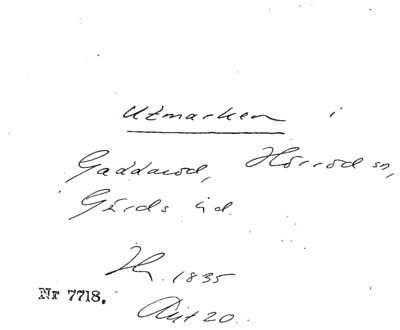 Utmarken i
Gaddarod, Hörröd sn,
Gärds hd.
1835
Nr 7718.
20.